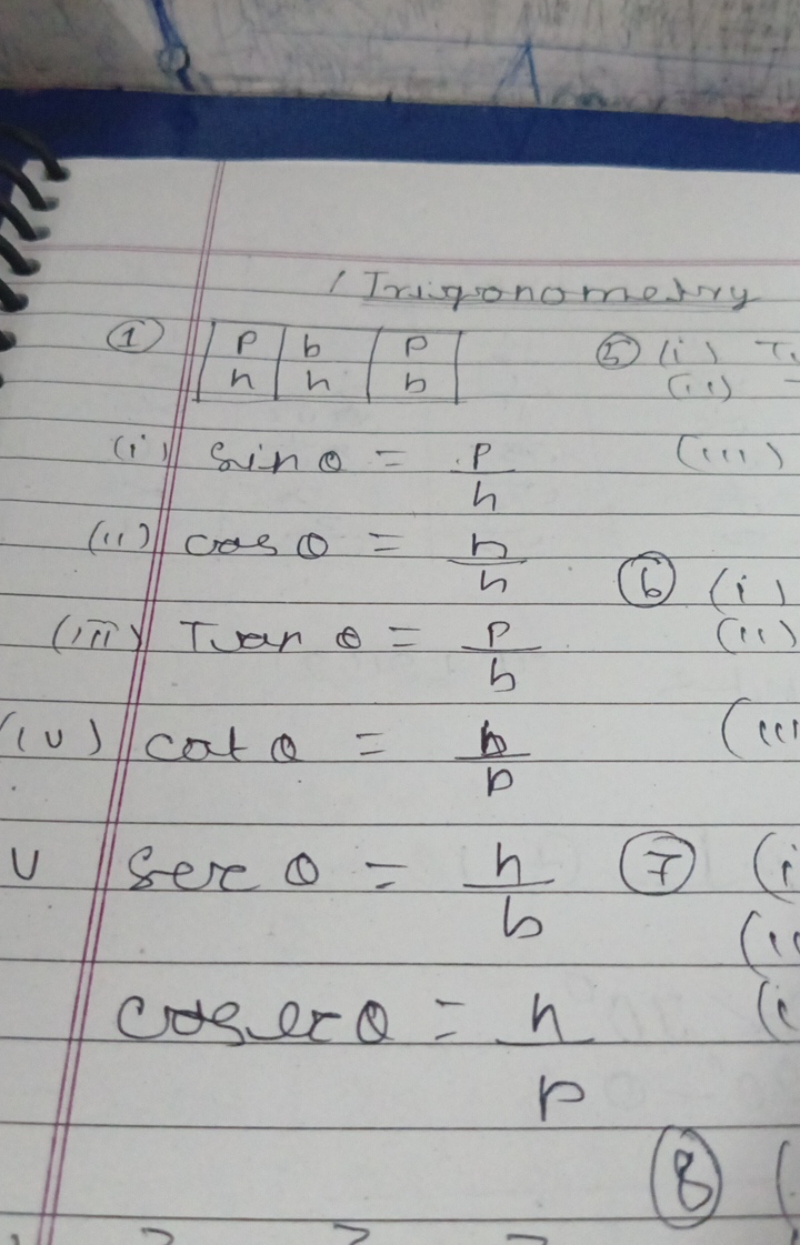 Trigonometry
① P b P
h h b
(i) Sin θ = P/h
(ii) cos θ = b/h
(iii) Tan θ = P/b
(iv) cot θ = b/p
v Sec θ = h/b
cosec θ = h/p
⑤ (i)
(ii)
(iii)
⑥ (i)
(ii)
(iii
⑦ (i
(ii
(i
⑧ (